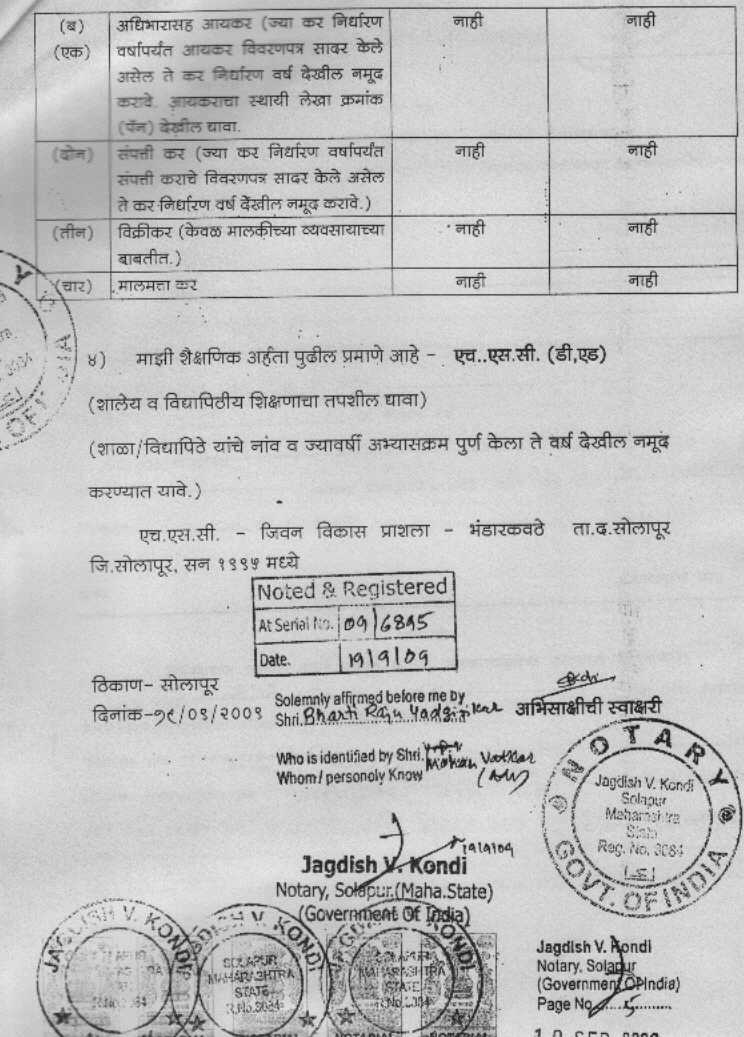 (ब) अधिभारासह आयकर (ज्या कर निर्धारण नाही नाही
(एक) वर्षापर्यंत आयकर विवरणपत्र सादर केले
असेल ते कर निर्धारण वर्ष देखील नमूद
करावे. आयकराचा स्थायी लेखा क्रमांक
(पॅन) देखील द्यावा.
(दोन) संपत्ती कर (ज्या कर निर्धारण वर्षापर्यंत नाही नाही
संपत्ती कराचे विवरणपत्र सादर केले असेल
ते कर निर्धारण वर्ष देखील नमूद करावे.)
(तीन) विक्रीकर (केवळ मालकीच्या व्यवसायाच्या नाही नाही
बाबतीत.)
(चार) मालमत्ता कर नाही नाही
४) माझी शैक्षणिक अर्हता पुढील प्रमाणे आहे - एच..एस.सी. (डी,एड)
(शालेय व विद्यापिठीय शिक्षणाचा तपशील द्यावा)
(शाळा/विद्यापिठे यांचे नांव व ज्यावर्षी अभ्यासक्रम पुर्ण केला ते वर्ष देखील नमूद
करण्यात यावे.)
एच.एस.सी. - जिवन विकास प्राशला - भंडारकवठे ता.द.सोलापूर
जि.सोलापूर, सन १९९५ मध्ये
Noted & Registered
At Serial No. 09/6895
Date. 19/9/09
ठिकाण- सोलापूर
दिनांक-१९/०९/२००९
Solemnly affirmed before me by
Shri. Bharti Raju
अभिसाक्षीची स्वाक्षरी
Who is identified by Shri. Mohan
Whom I personoly Know (Adv)
NOTARY
Jagdish V. Kondi
Solapur
Maharashtra
State
Reg. No. 3084
GOVT. OF INDIA
19/9/09
Jagdish V. Kondi
Notary, Solapur.(Maha.State)
(Government Of India)
JAGDISH V. KONDI
JAGDISH V. KONDI
SOLAPUR
MAHARASHTRA
STATE
R.No.3084
JAGDISH V. KONDI
SOLAPUR
MAHARASHTRA
STATE
R.No.3084
Jagdish V. Kondi
Notary, Solapur
(Government OF India)
Page No. 5
NOTARIAL NOTARIAL NOTARIAL
SEP